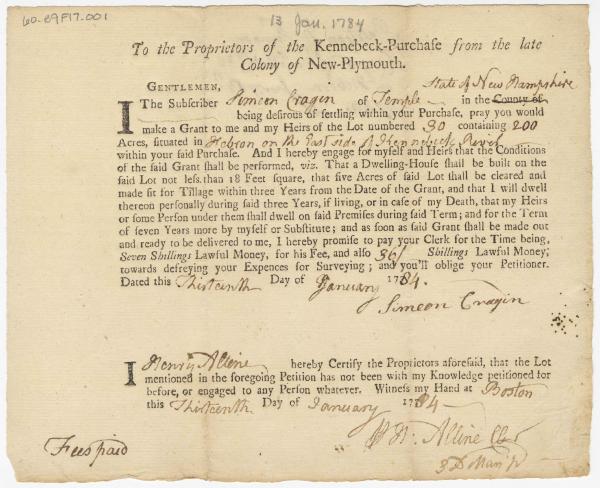 60-29F17.001
13 Jan. 1784
To the Proprietors of the Kennebeck-Purchase from the late
Colony of New-Plymouth.
GENTLEMEN,
State of New Hampshire
I The Subscriber Simeon Cragin of Temple in the County of
being desirous of settling within your Purchase, pray you would
make a Grant to me and my Heirs of the Lot numbered 30 containing 200
Acres, situated in Hebron on the East side of Kennebeck River
within your said Purchase. And I hereby engage for myself and Heirs that the Conditions
of the said Grant shall be performed, viz. That a Dwelling-House shall be built on the
said Lot not less than 18 Feet square, that five Acres of said Lot shall be cleared and
made fit for Tillage within three Years from the Date of the Grant, and that I will dwell
thereon personally during said three Years, if living, or in case of my Death, that my Heirs
or some Person under them shall dwell on said Premises during said Term; and for the Term
of seven Years more by myself or Substitute; and as soon as said Grant shall be made out
and ready to be delivered to me, I hereby promise to pay your Clerk for the Time being,
Seven Shillings Lawful Money, for his Fee, and also 36/ Shillings Lawful Money;
towards defreying your Expences for Surveying; and you'll oblige your Petitioner.
Dated this Thirteenth Day of January 1784.
Simeon Cragin
I Henry Alline hereby Certify the Proprietors aforesaid, that the Lot
mentioned in the foregoing Petition has not been with my Knowledge petitioned for
before, or engaged to any Person whatever. Witness my Hand at Boston
this Thirteenth Day of January 1784
Alline
Fees paid